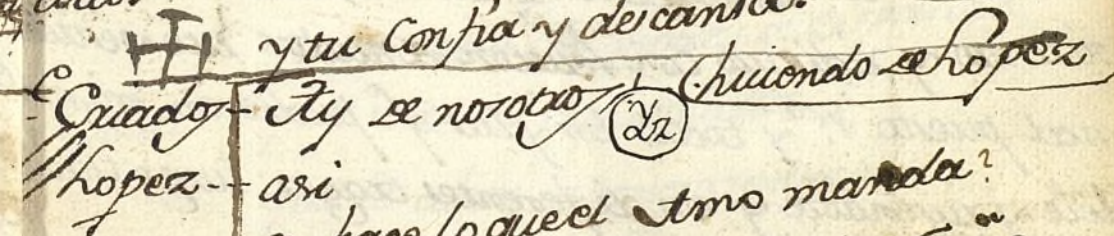 y tu Confia y descansa.
Criados - Ay de nosotros huiendo de Lopez
Lopez - - asi
hace lo que el Amo manda?